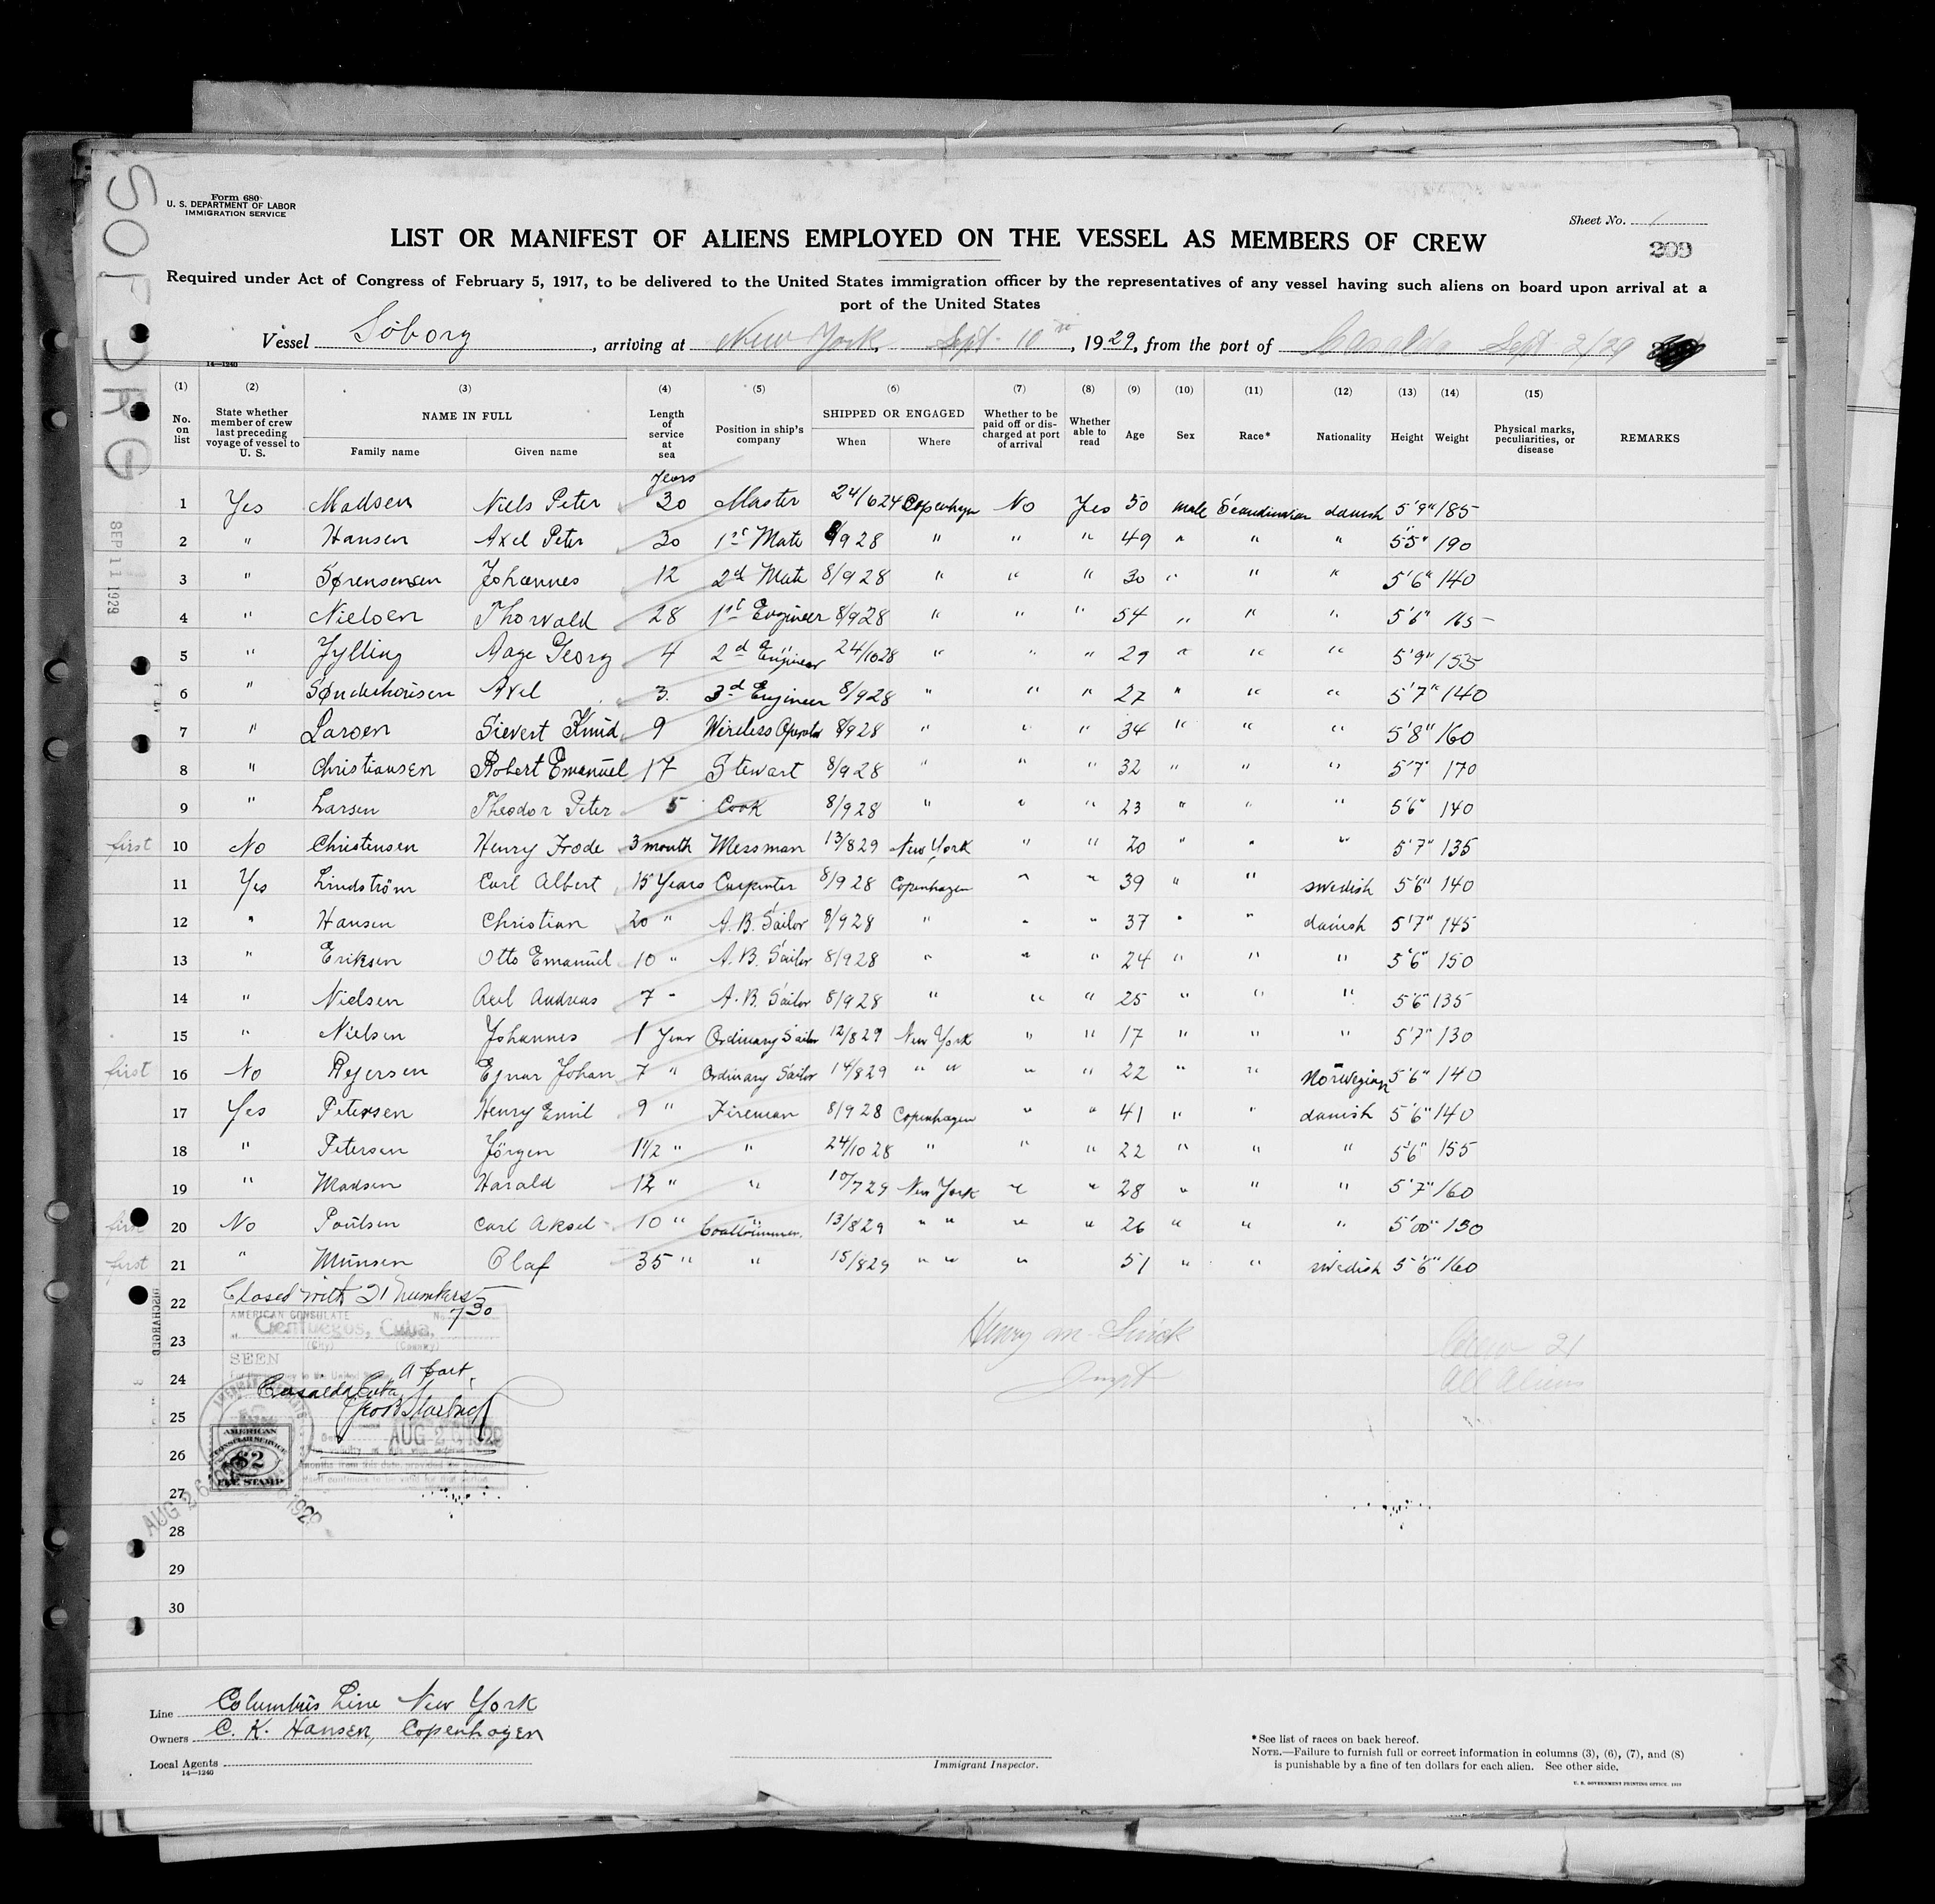 SOBORG
SEP 11 1929
Form 680
U. S. DEPARTMENT OF LABOR
IMMIGRATION SERVICE
Sheet No. 1
209
LIST OR MANIFEST OF ALIENS EMPLOYED ON THE VESSEL AS MEMBERS OF CREW
Required under Act of Congress of February 5, 1917, to be delivered to the United States immigration officer by the representatives of any vessel having such aliens on board upon arrival at a
port of the United States
Vessel Söborg, arriving at New York, Sept. 10th, 1929, from the port of Casilda Sept 2/29
14—1240
(1) (2) (3) (4) (5) (6) (7) (8) (9) (10) (11) (12) (13) (14) (15)
No. on list State whether member of crew last preceding voyage of vessel to U. S. NAME IN FULL Family name Given name Length of service at sea Position in ship's company SHIPPED OR ENGAGED When Where Whether to be paid off or discharged at port of arrival Whether able to read Age Sex Race* Nationality Height Weight Physical marks, peculiarities, or disease REMARKS
Years
1 Yes Madsen Niels Peter 30 Master 24/6 24 Copenhagen No Yes 50 male Scandinavian danish 5'9" 185
2 " Hansen Axel Peter 30 1st Mate 8/9 28 " " " 49 " " " 5'5" 190
3 " Sørensensen Johannes 12 2d Mate 8/9 28 " " " 30 " " " 5'6" 140
4 " Nielsen Thorvald 28 1st Engineer 8/9 28 " " " 54 " " " 5'6" 165
5 " Jylling Aage Georg 4 2d Engineer 24/10 28 " " " 29 " " " 5'9" 155
6 " Axel 3 3d Engineer 8/9 28 " " " 27 " " " 5'7" 140
7 " Larsen Sievert Knud 9 Wireless Operator 8/9 28 " " " 34 " " " 5'8" 160
8 " Christiansen Robert Emanuel 17 Stewart 8/9 28 " " " 32 " " " 5'7" 170
9 " Larsen Theodor Peter 5 Cook 8/9 28 " " " 23 " " " 5'6" 140
first 10 No Christensen Henry Frode 3 month Messman 13/8 29 New York " " 20 " " " 5'7" 135
11 Yes Lindström Carl Albert 15 Years Carpenter 8/9 28 Copenhagen " " 39 " " swedish 5'6" 140
12 " Hansen Christian 20 " A. B. Sailor 8/9 28 " " " 37 " " danish 5'7" 145
13 " Eriksen Otto Emanuel 10 " A. B. Sailor 8/9 28 " " " 24 " " " 5'6" 150
14 " Nielsen Axel Andreas 7 " A. B. Sailor 8/9 28 " " " 25 " " " 5'6" 135
15 " Nielsen Johannes 1 Year Ordinary Sailor 12/8 29 New York " " 17 " " " 5'7" 130
first 16 No Rejersen Ejnar Johan 7 " Ordinary Sailor 14/8 29 " " " " 22 " " Norwegian 5'6" 140
17 Yes Petersen Henry Emil 9 " Fireman 8/9 28 Copenhagen " " 41 " " danish 5'6" 140
18 " Petersen Jörgen 1 1/2 " " 24/10 28 " " " 22 " " " 5'6" 155
19 " Madsen Harald 12 " " 10/7 29 New York " " 28 " " " 5'7" 160
first 20 No Poulsen Carl Aksel 10 " Coaltrimmer 13/8 29 " " " " 26 " " " 5'00" 150
first 21 " Munsen Olaf 35 " " 15/8 29 " " " 51 " " swedish 5'6" 160
22 Closed with 21 numbers
AMERICAN CONSULATE No. 730
DISCHARGED
23 Cienfuegos, Cuba.
(City) (Country)
SEEN
Crew 21
24 A port,
All Aliens
Casilda Cuba
25
AUG 26 1929
26
AMERICAN CONSULAR SERVICE
$2
FEE STAMP
27
AUG 26 1929
28
29
30
Line Columbus Line New York
Owners C. K. Hansen, Copenhagen
Local Agents
14—1240
Immigrant Inspector.
*See list of races on back hereof.
NOTE.—Failure to furnish full or correct information in columns (3), (6), (7), and (8)
is punishable by a fine of ten dollars for each alien. See other side.